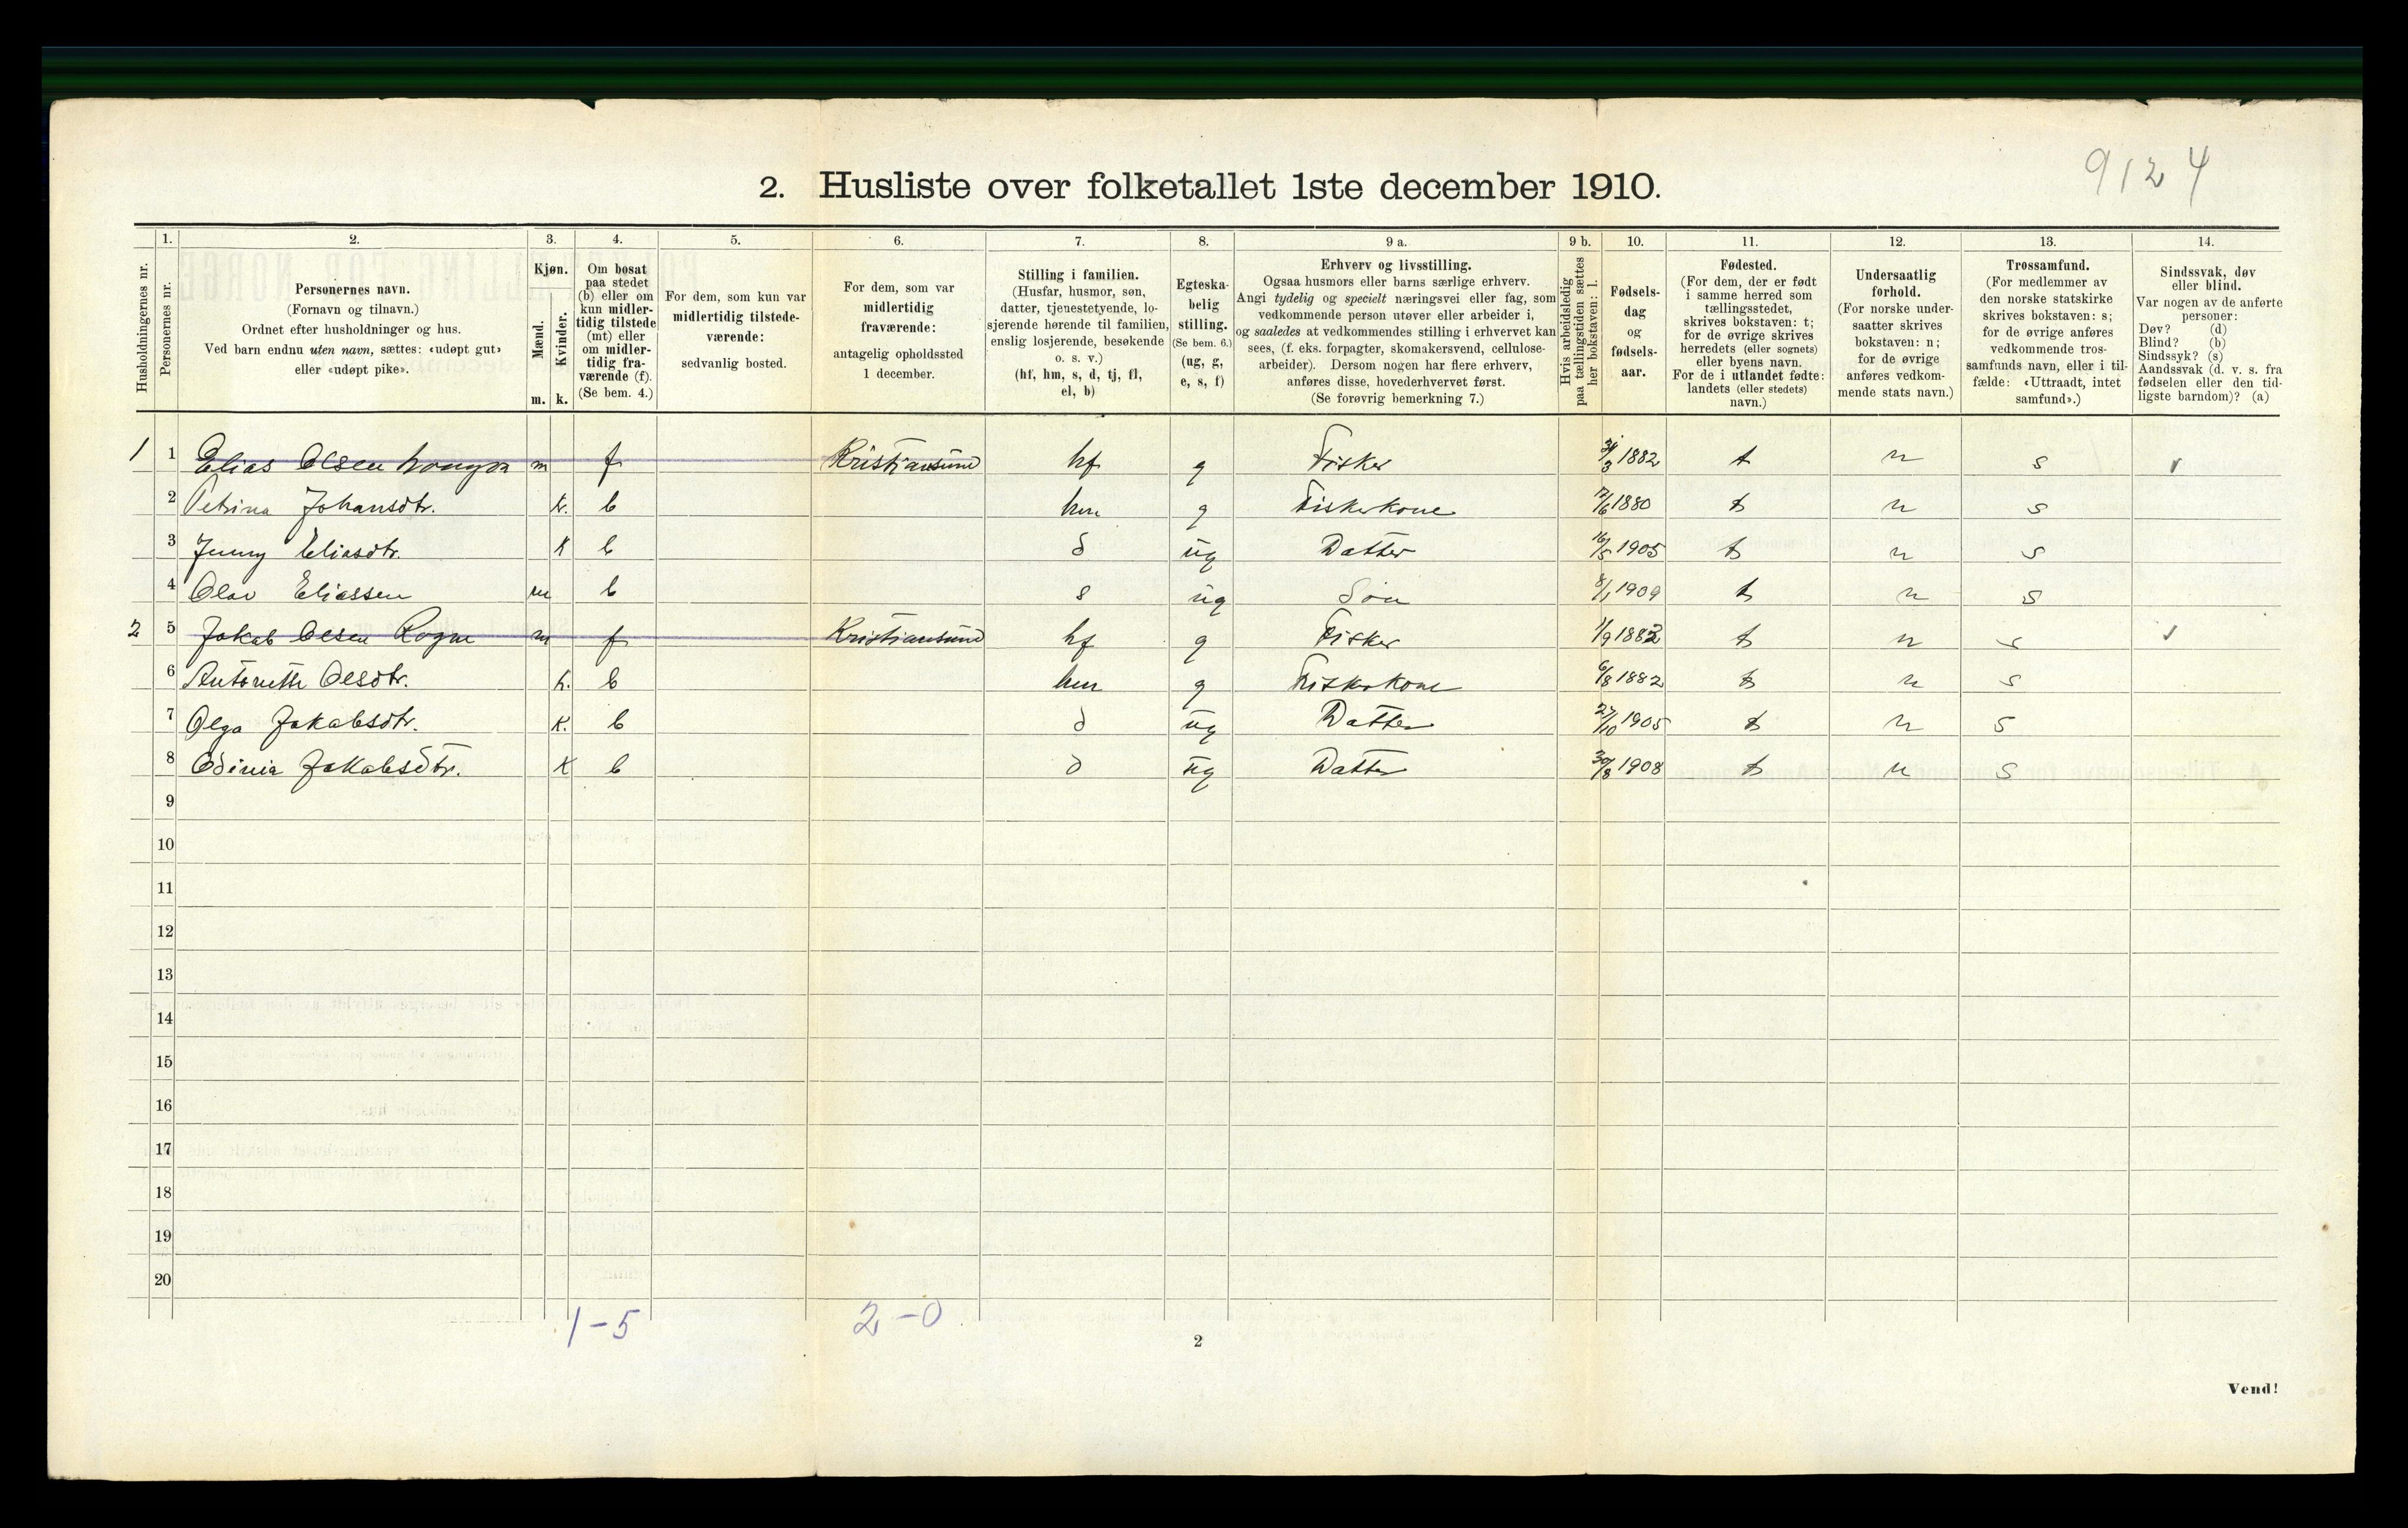 9124
2. Husliste over folketallet 1ste december 1910.
Husholdningernes nr.
1. Personernes nr.
2. Personernes navn.
(Fornavn og tilnavn.)
Ordnet efter husholdninger og hus.
Ved barn endnu uten navn, sættes: «udøpt gut»
eller «udøpt pike».
3. Kjøn.
Mænd. m.
Kvinder. k.
4. Om bosat
paa stedet
(b) eller om
kun midler-
tidig tilstede
(mt) eller
om midler-
tidig fra-
værende (f).
(Se bem. 4.)
5. For dem, som kun var
midlertidig tilstede-
værende:
sedvanlig bosted.
6. For dem, som var
midlertidig
fraværende:
antagelig opholdssted
1 december.
7. Stilling i familien.
(Husfar, husmor, søn,
datter, tjenestetyende, lo-
sjerende hørende til familien,
enslig losjerende, besøkende
o. s. v.)
(hf, hm, s, d, tj, fl,
el, b)
8. Egteska-
belig
stilling.
(Se bem. 6.)
(ug, g,
e, s, f)
9 a. Erhverv og livsstilling.
Ogsaa husmors eller barns særlige erhverv.
Angi tydelig og specielt næringsvei eller fag, som
vedkommende person utøver eller arbeider i,
og saaledes at vedkommendes stilling i erhvervet kan
sees, (f. eks. forpagter, skomakersvend, cellulose-
arbeider). Dersom nogen har flere erhverv,
anføres disse, hovederhvervet først.
(Se forøvrig bemerkning 7.)
9 b. Hvis arbeidsledig
paa tællingstiden sættes
her bokstaven: l.
10. Fødsels-
dag
og
fødsels-
aar.
11. Fødested.
(For dem, der er født
i samme herred som
tællingsstedet,
skrives bokstaven: t;
for de øvrige skrives
herredets (eller sognets)
eller byens navn.
For de i utlandet fødte:
landets (eller stedets)
navn.)
12. Undersaatlig
forhold.
(For norske under-
saatter skrives
bokstaven: n;
for de øvrige
anføres vedkom-
mende stats navn.)
13. Trossamfund.
(For medlemmer av
den norske statskirke
skrives bokstaven: s;
for de øvrige anføres
vedkommende tros-
samfunds navn, eller i til-
fælde: «Uttraadt, intet
samfund».)
14. Sindssvak, døv
eller blind.
Var nogen av de anførte
personer:
Døv? (d)
Blind? (b)
Sindssyk? (s)
Aandssvak (d. v. s. fra
fødselen eller den tid-
ligste barndom)? (a)
1 1 Elias Olsen m f Kristiansund hf g Fisker 1882 t n s
2 Petrina Johansdtr. k. b hm g Fiskerkone 17/6 1880 t n s
3 Jenny Eliasdtr. k b d ug Datter 16/5 1905 t n s
4 Olav Eliassen m b s ug Søn 8/1 1909 t n s
2 5 Jakob Olsen Rogne m f Kristiansund hf g Fisker 1/9 1883 t n s
6 Antonette Olsdtr. k. b hm g Fiskerkone 6/8 1882 t n s
7 Olga Jakobsdtr. k. b d ug Datter 27/10 1905 t n s
8 Odinia Jakobsdtr. k b d ug Datter 30/8 1908 t n s
9
10
11
12
13
14
15
16
17
18
19
20
1-5 2-0
2
Vend!